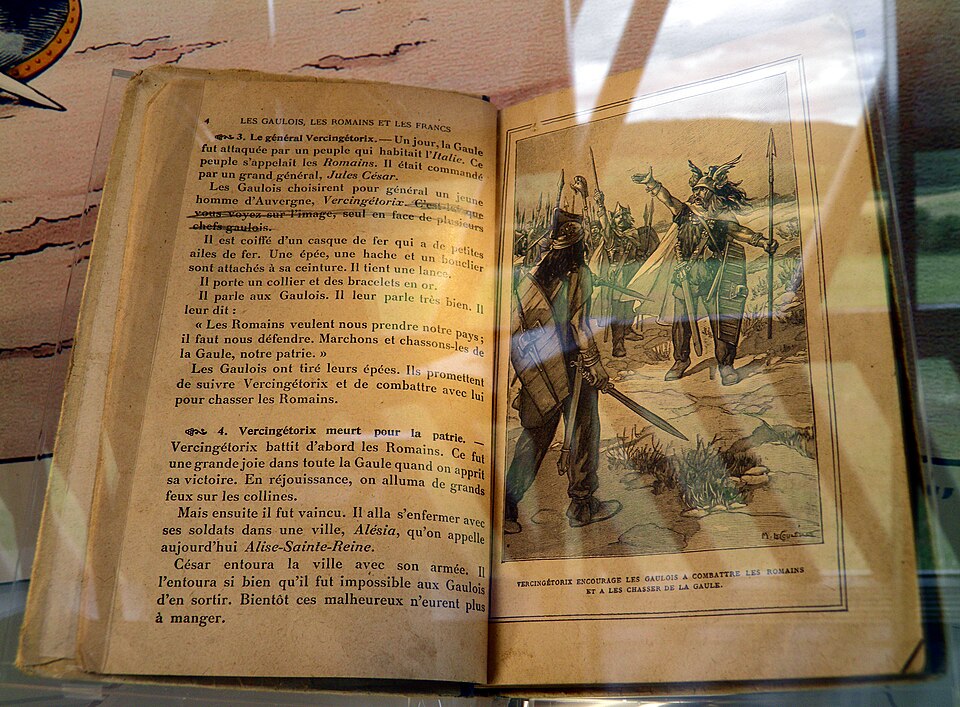 4 LES GAULOIS, LES ROMAINS ET LES FRANCS
3. Le général Vercingétorix. — Un jour, la Gaule
fut attaquée par un peuple qui habitait l'Italie. Ce
peuple s'appelait les Romains. Il était commandé
par un grand général, Jules César.
Les Gaulois choisirent pour général un jeune
homme d'Auvergne, Vercingétorix. C'est lui que
vous voyez sur l'image, seul en face de plusieurs
chefs gaulois.
Il est coiffé d'un casque de fer qui a de petites
ailes de fer. Une épée, une hache et un bouclier
sont attachés à sa ceinture. Il tient une lance.
Il porte un collier et des bracelets en or.
Il parle aux Gaulois. Il leur parle très bien. Il
leur dit :
« Les Romains veulent nous prendre notre pays ;
il faut nous défendre. Marchons et chassons-les de
la Gaule, notre patrie. »
Les Gaulois ont tiré leurs épées. Ils promettent
de suivre Vercingétorix et de combattre avec lui
pour chasser les Romains.
4. Vercingétorix meurt pour la patrie. —
Vercingétorix battit d'abord les Romains. Ce fut
une grande joie dans toute la Gaule quand on apprit
sa victoire. En réjouissance, on alluma de grands
feux sur les collines.
Mais ensuite il fut vaincu. Il alla s'enfermer avec
ses soldats dans une ville, Alésia, qu'on appelle
aujourd'hui Alise-Sainte-Reine.
César entoura la ville avec son armée. Il
l'entoura si bien qu'il fut impossible aux Gaulois
d'en sortir. Bientôt ces malheureux n'eurent plus
à manger.
VERCINGÉTORIX ENCOURAGE LES GAULOIS A COMBATTRE LES ROMAINS
ET A LES CHASSER DE LA GAULE.